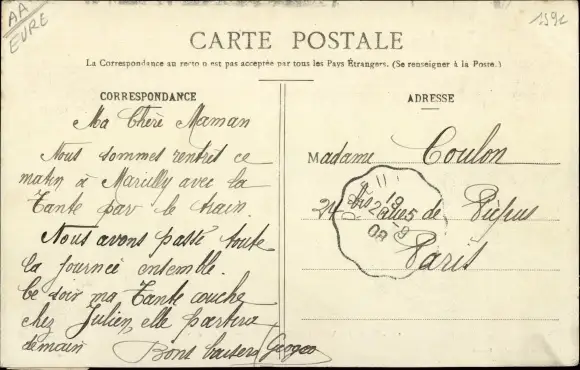 AA
EURE
1591
CARTE POSTALE
La Correspondance au recto n est pas acceptée par tous les Pays Étrangers. (Se renseigner à la Poste.)
CORRESPONDANCE
Ma Chère Maman
Nous sommes rentrés ce
matin à Marcilly avec la
Tante par le train.
Nous avons passé toute
la journée ensemble.
Ce soir ma Tante couche
chez Julien, elle partira
demain Bons baisers
ADRESSE
Madame Coulon
24 bis Rue de Picpus
Paris